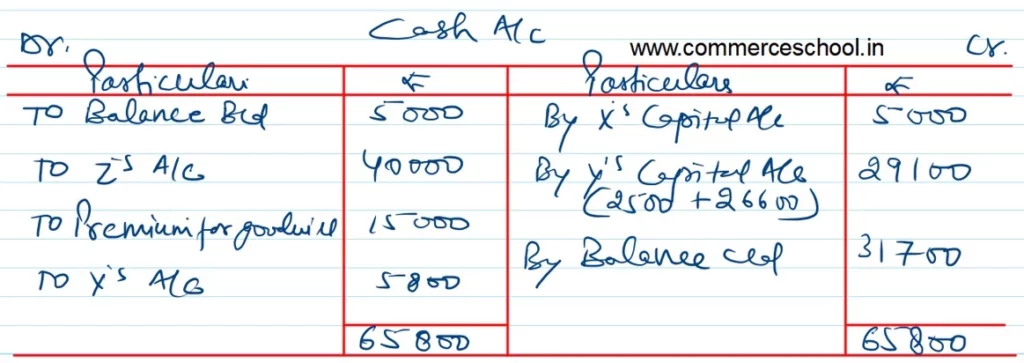 Cash A/c
www.commerceschool.in
Dr. Cr.
Particulars ₹ Particulars ₹
TO Balance B/d 5000 By X's Capital A/c 5000
TO Z's A/c 40000 By Y's Capital A/c 29100
(2500 + 26600)
TO Premium for goodwill 15000
By Balance c/d 31700
TO X's A/c 5800
65800 65800